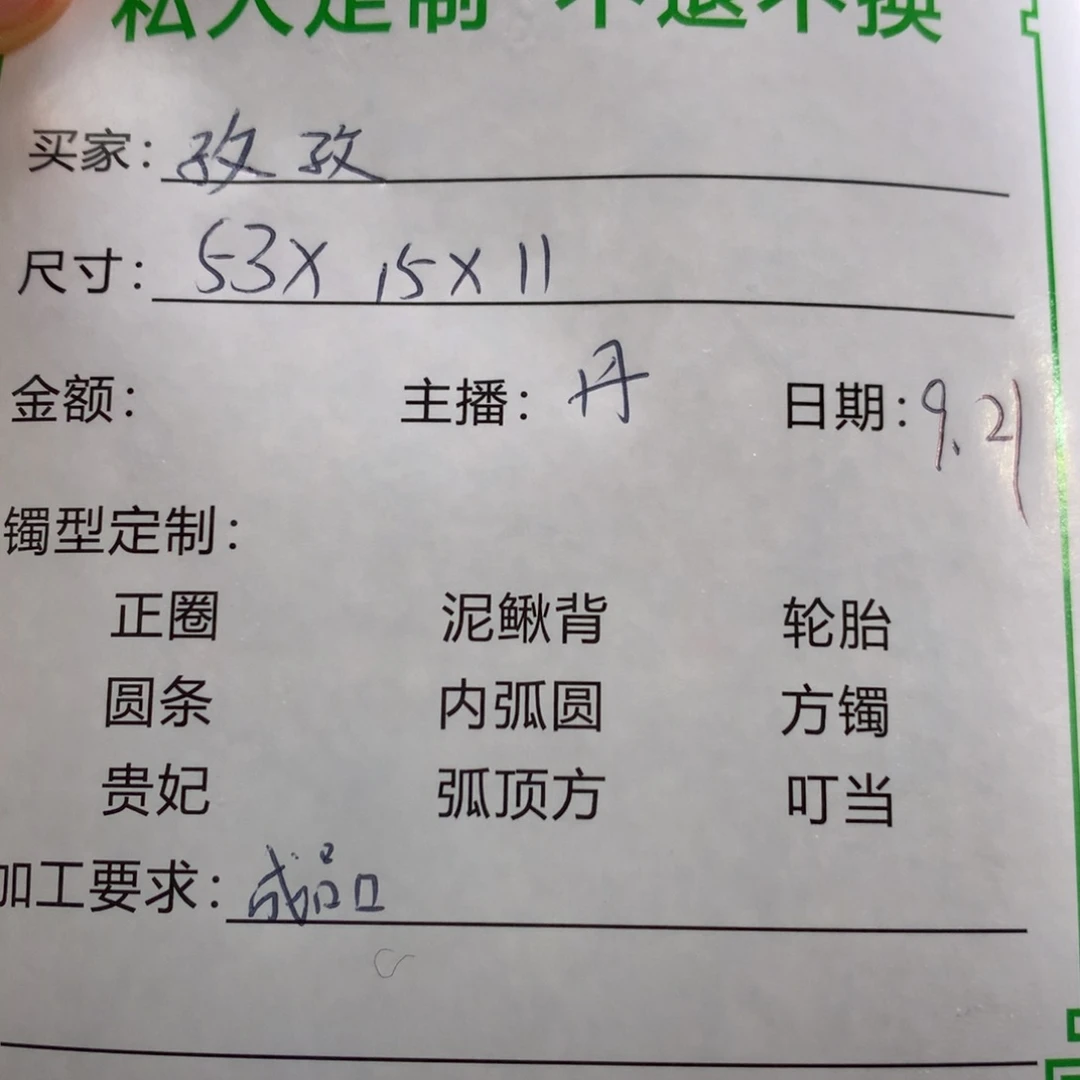 私人定制 不退不换
买家：孜孜
尺寸：53X 15X11
金额： 主播：丹 日期：9.21
镯型定制：
正圈 泥鳅背 轮胎
圆条 内弧圆 方镯
贵妃 弧顶方 叮当
加工要求：成品